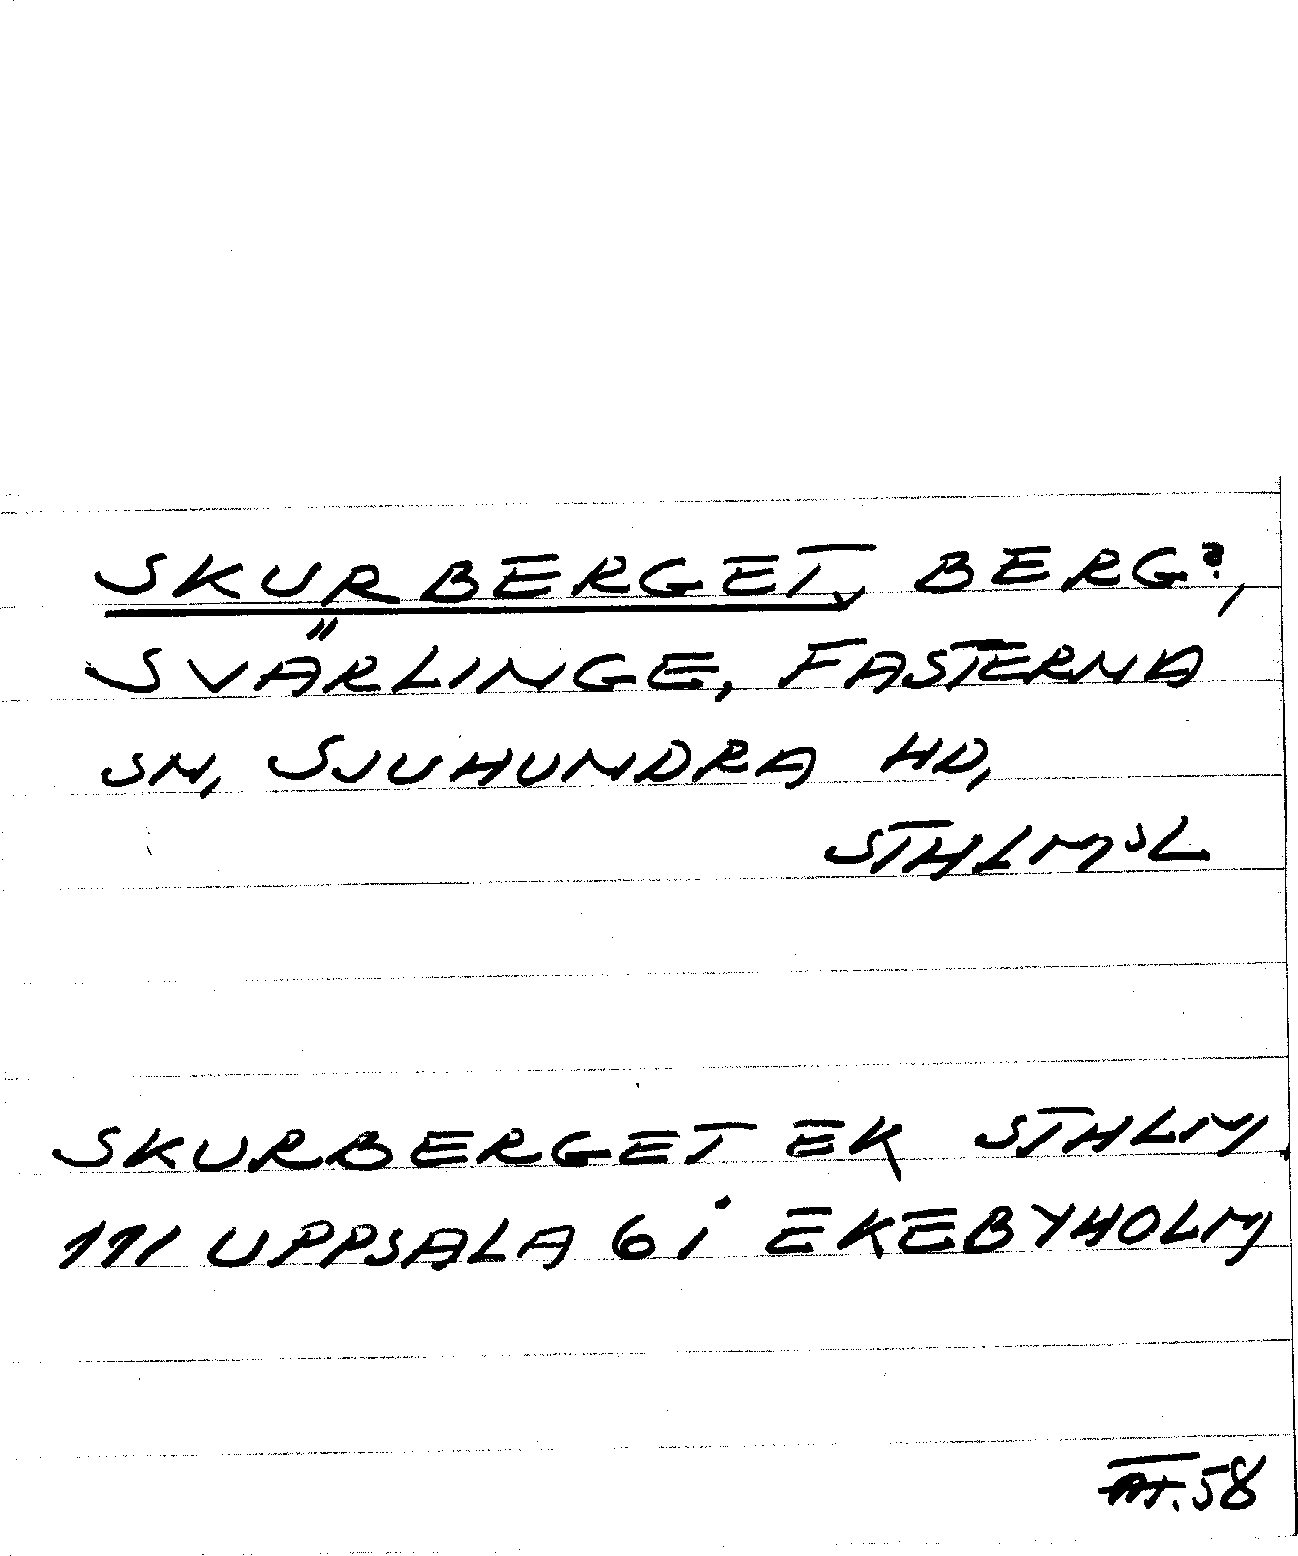 SKURBERGET, BERG?,
SVÄRLINGE, FASTERNA
SN, SJUHUNDRA HD,
STHLMSL
SKURBERGET EK STHLM.
191 UPPSALA 6i EKEBYHOLM
58